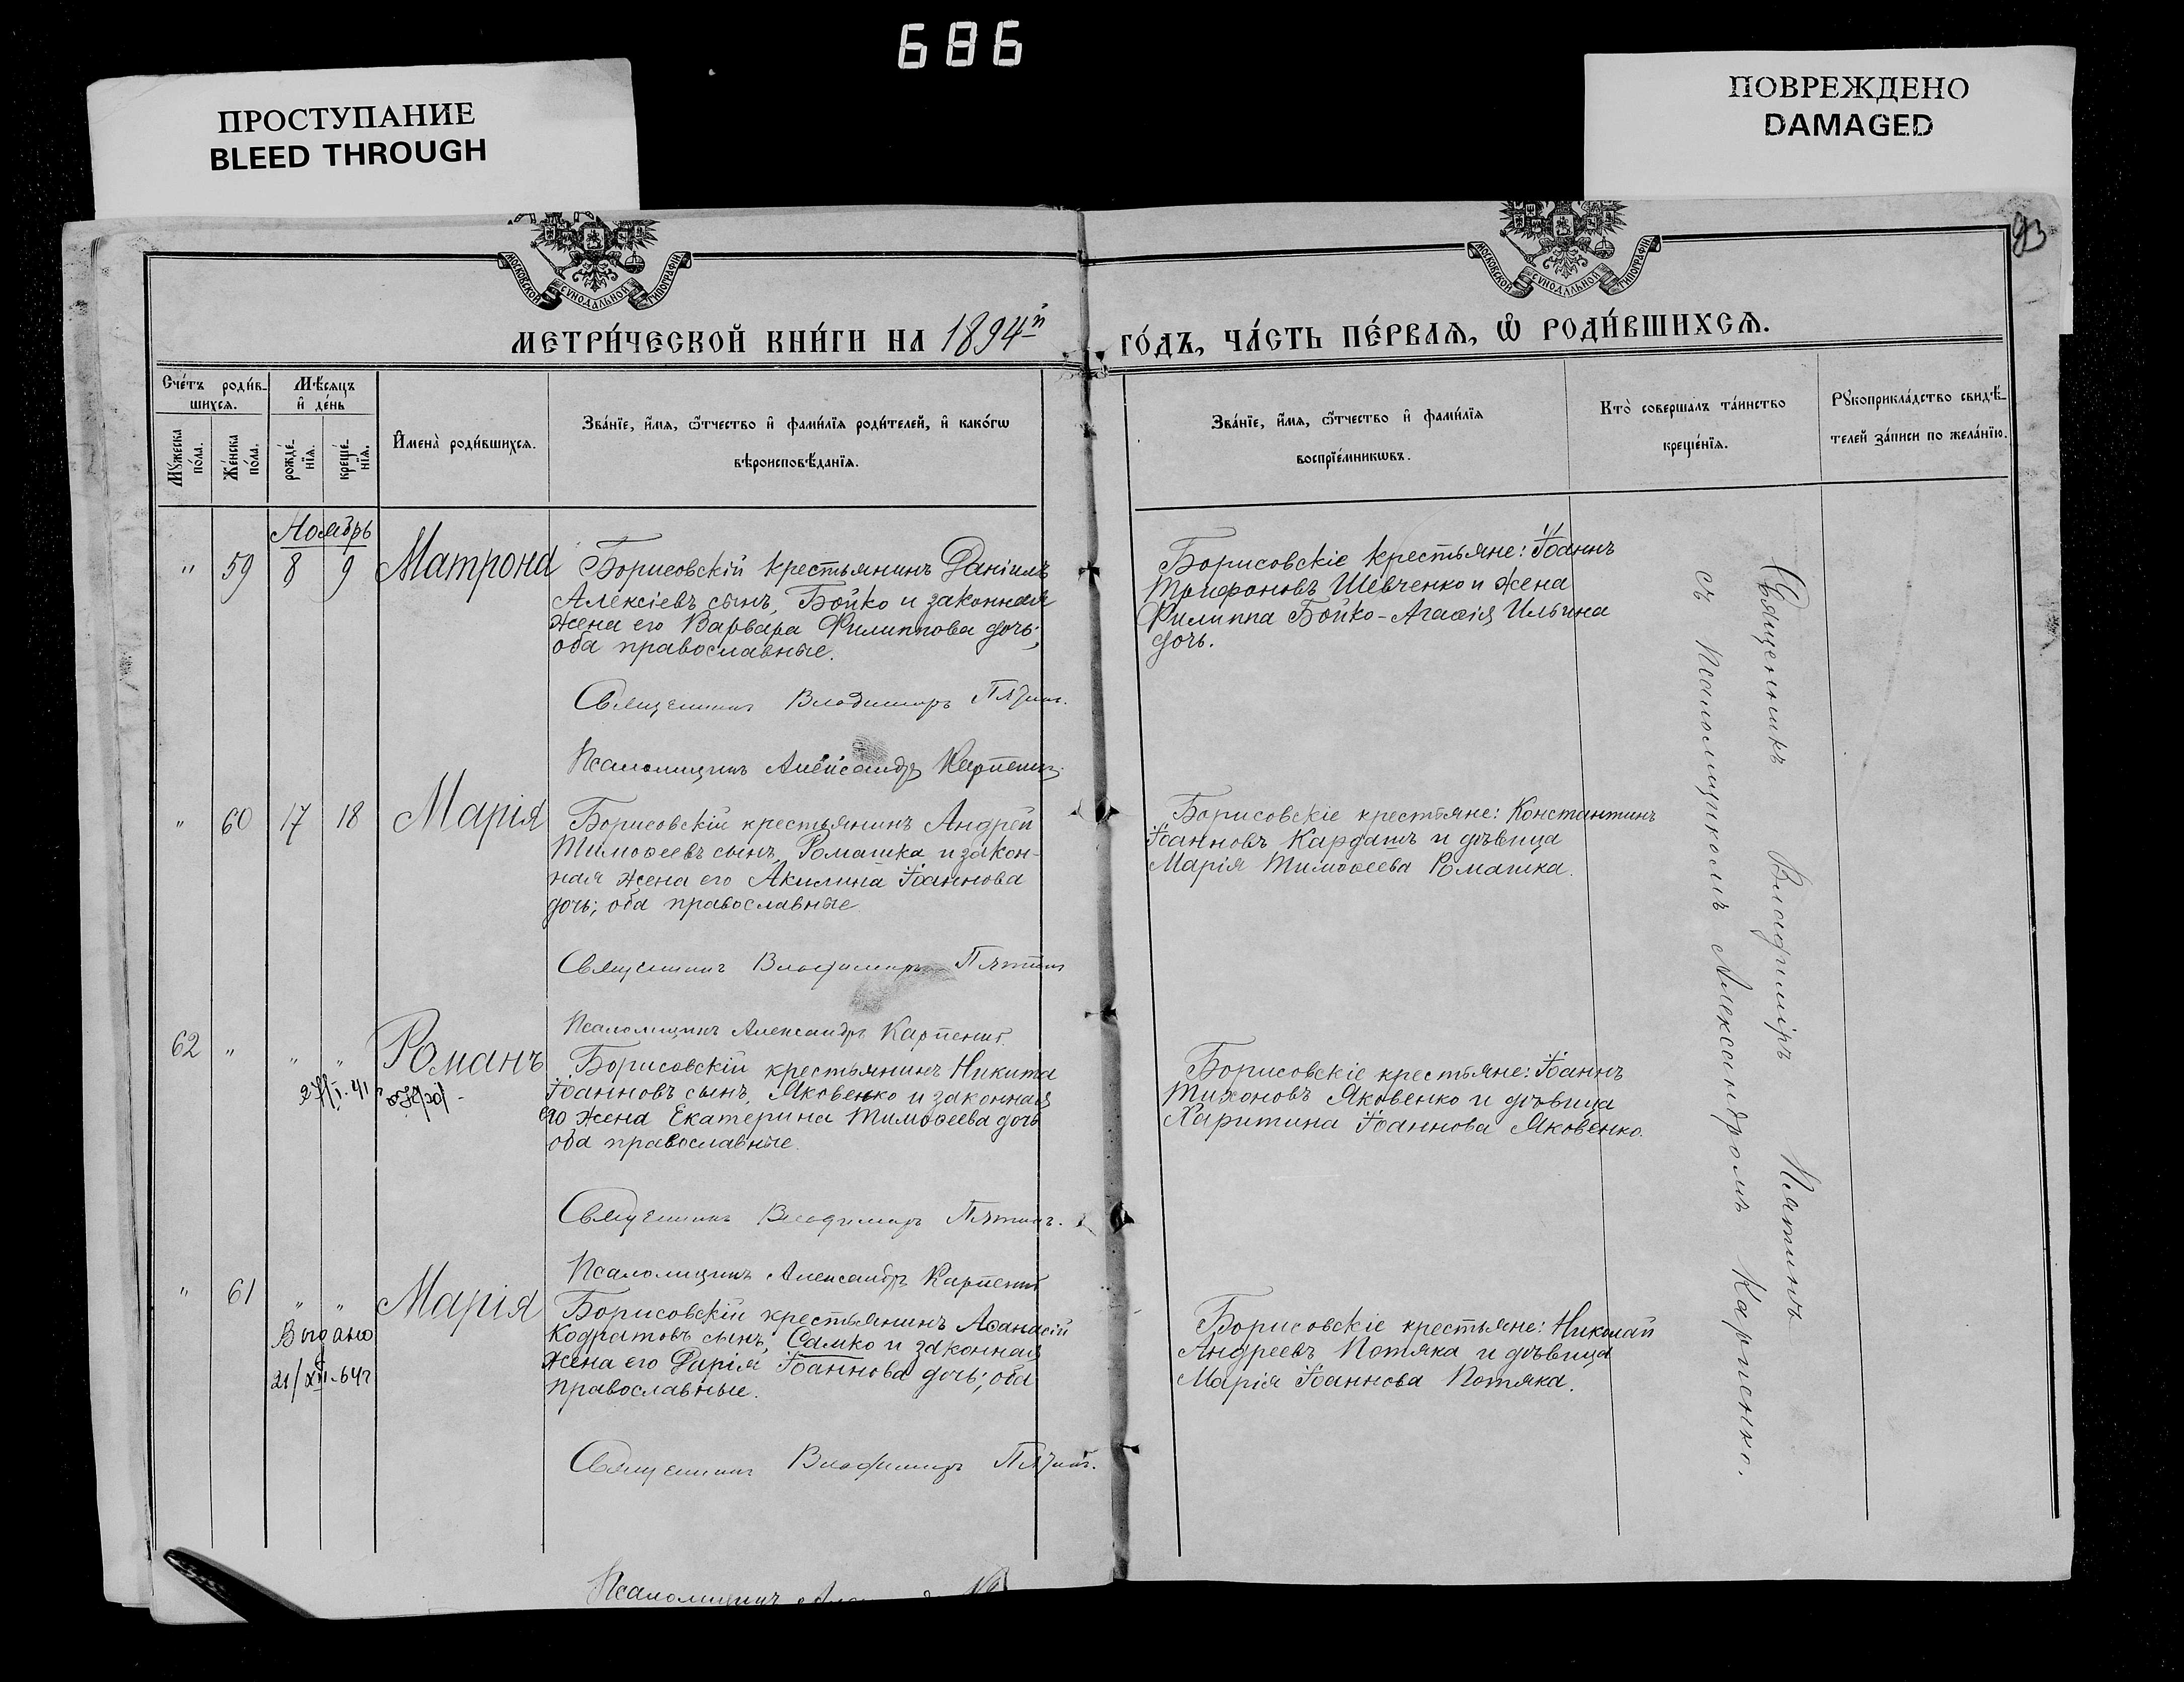 686
ПРОСТУПАНИЕ
BLEED THROUGH
ПОВРЕЖДЕНО
DAMAGED
93
МОСКОВСКОЙ СѴНОДАЛЬНОЙ ТИПОГРАФІИ
МОСКОВСКОЙ СѴНОДАЛЬНОЙ ТИПОГРАФІИ
МЕТРИ́ЧЕСКОЙ КНИ́ГИ НА 1894й
ГО́ДЪ, ЧА́СТЬ ПЕ́РВАѦ, Ѿ РОДИ́ВШИХСѦ.
Сче́тъ роди́в-
шихсѧ.
Мѣ́сѧцъ
и҆ де́нь
Мꙋ́жеска по́ла.
Же́нска по́ла.
рожде́-
нїѧ.
креще́-
нїѧ.
И҆мена̀ роди́вшихсѧ.
Зва́нїе, и҆́мѧ, ѻ҆́тчество и҆ фами́лїѧ роди́телей, и҆ како́гѡ
вѣроисповѣ́данїѧ.
Зва́нїе, и҆́мѧ, ѻ҆́тчество и҆ фами́лїѧ
воспрїе́мникѡвъ.
Кто̀ соверша́лъ та́инство
креще́нїѧ.
Рꙋкоприкла́дство свидѣ́-
телей за́писи по жела́нїю.
Ноябрь
" 59 8 9 Матрона
Борисовскій крестьянинъ Даніилъ
Алексіевъ сынъ, Бойко и законная
жена его Варвара Филиппова дочь;
оба православные.
Священникъ Владимиръ Пятинъ.
Псаломщикъ Александръ Карпенко
Борисовскіе крестьяне: Іоаннъ
Трифоновъ Шевченко и жена
Филиппа Бойко-Агаѳія Ильина
дочь.
" 60 17 18 Марія
Борисовскій крестьянинъ Андрей
Тимоѳеевъ сынъ, Ромашка и закон-
ная жена его Акилина Іоаннова
дочь; оба православные
Священникъ Владимиръ Пятинъ
Псаломщикъ Александръ Карпенко
Борисовскіе крестьяне: Константинъ
Іоанновъ Кардашъ и дѣвица
Марія Тимоѳеева Ромашка.
62 " " " Романъ
Борисовскій крестьянинъ Никита
Іоанновъ сынъ, Яковенко и законная
его жена Екатерина Тимоѳеева дочь
оба православные.
Священникъ Владимиръ Пятинъ.
Псаломщикъ Александръ Карпенко
Борисовскіе крестьяне: Іоаннъ
Тихоновъ Яковенко и дѣвица
Харитина Іоаннова Яковенко.
" 61 " " Марія
Выдано
21/XII-64г
Борисовскій крестьянинъ Аѳанасій
Кодратовъ сынъ, Самко и законная
жена его Дарія Іоаннова дочь; оба
православные.
Священникъ Владимиръ Пятинъ.
Псаломщикъ
Борисовскіе крестьяне: Николай
Андреевъ Потяка и дѣвица
Марія Іоаннова Потяка.
Священникъ Владиміръ Пятинъ
съ псаломщикомъ Александромъ Карпенко.